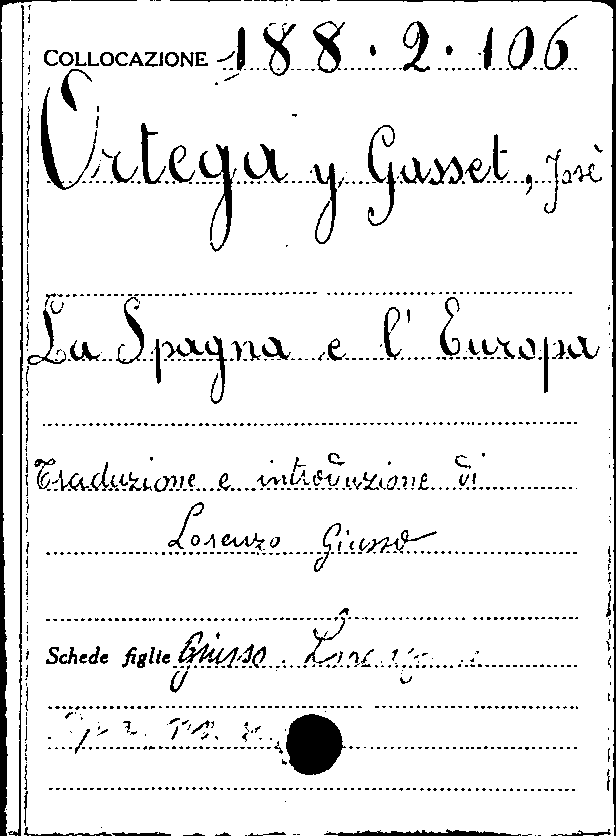 COLLOCAZIONE 188.2.106
Ortega y Gasset, Josè
La Spagna e l'Europa
Traduzione e introduzione di
Lorenzo Giusso
Schede figlie Giusso. Lorenzo